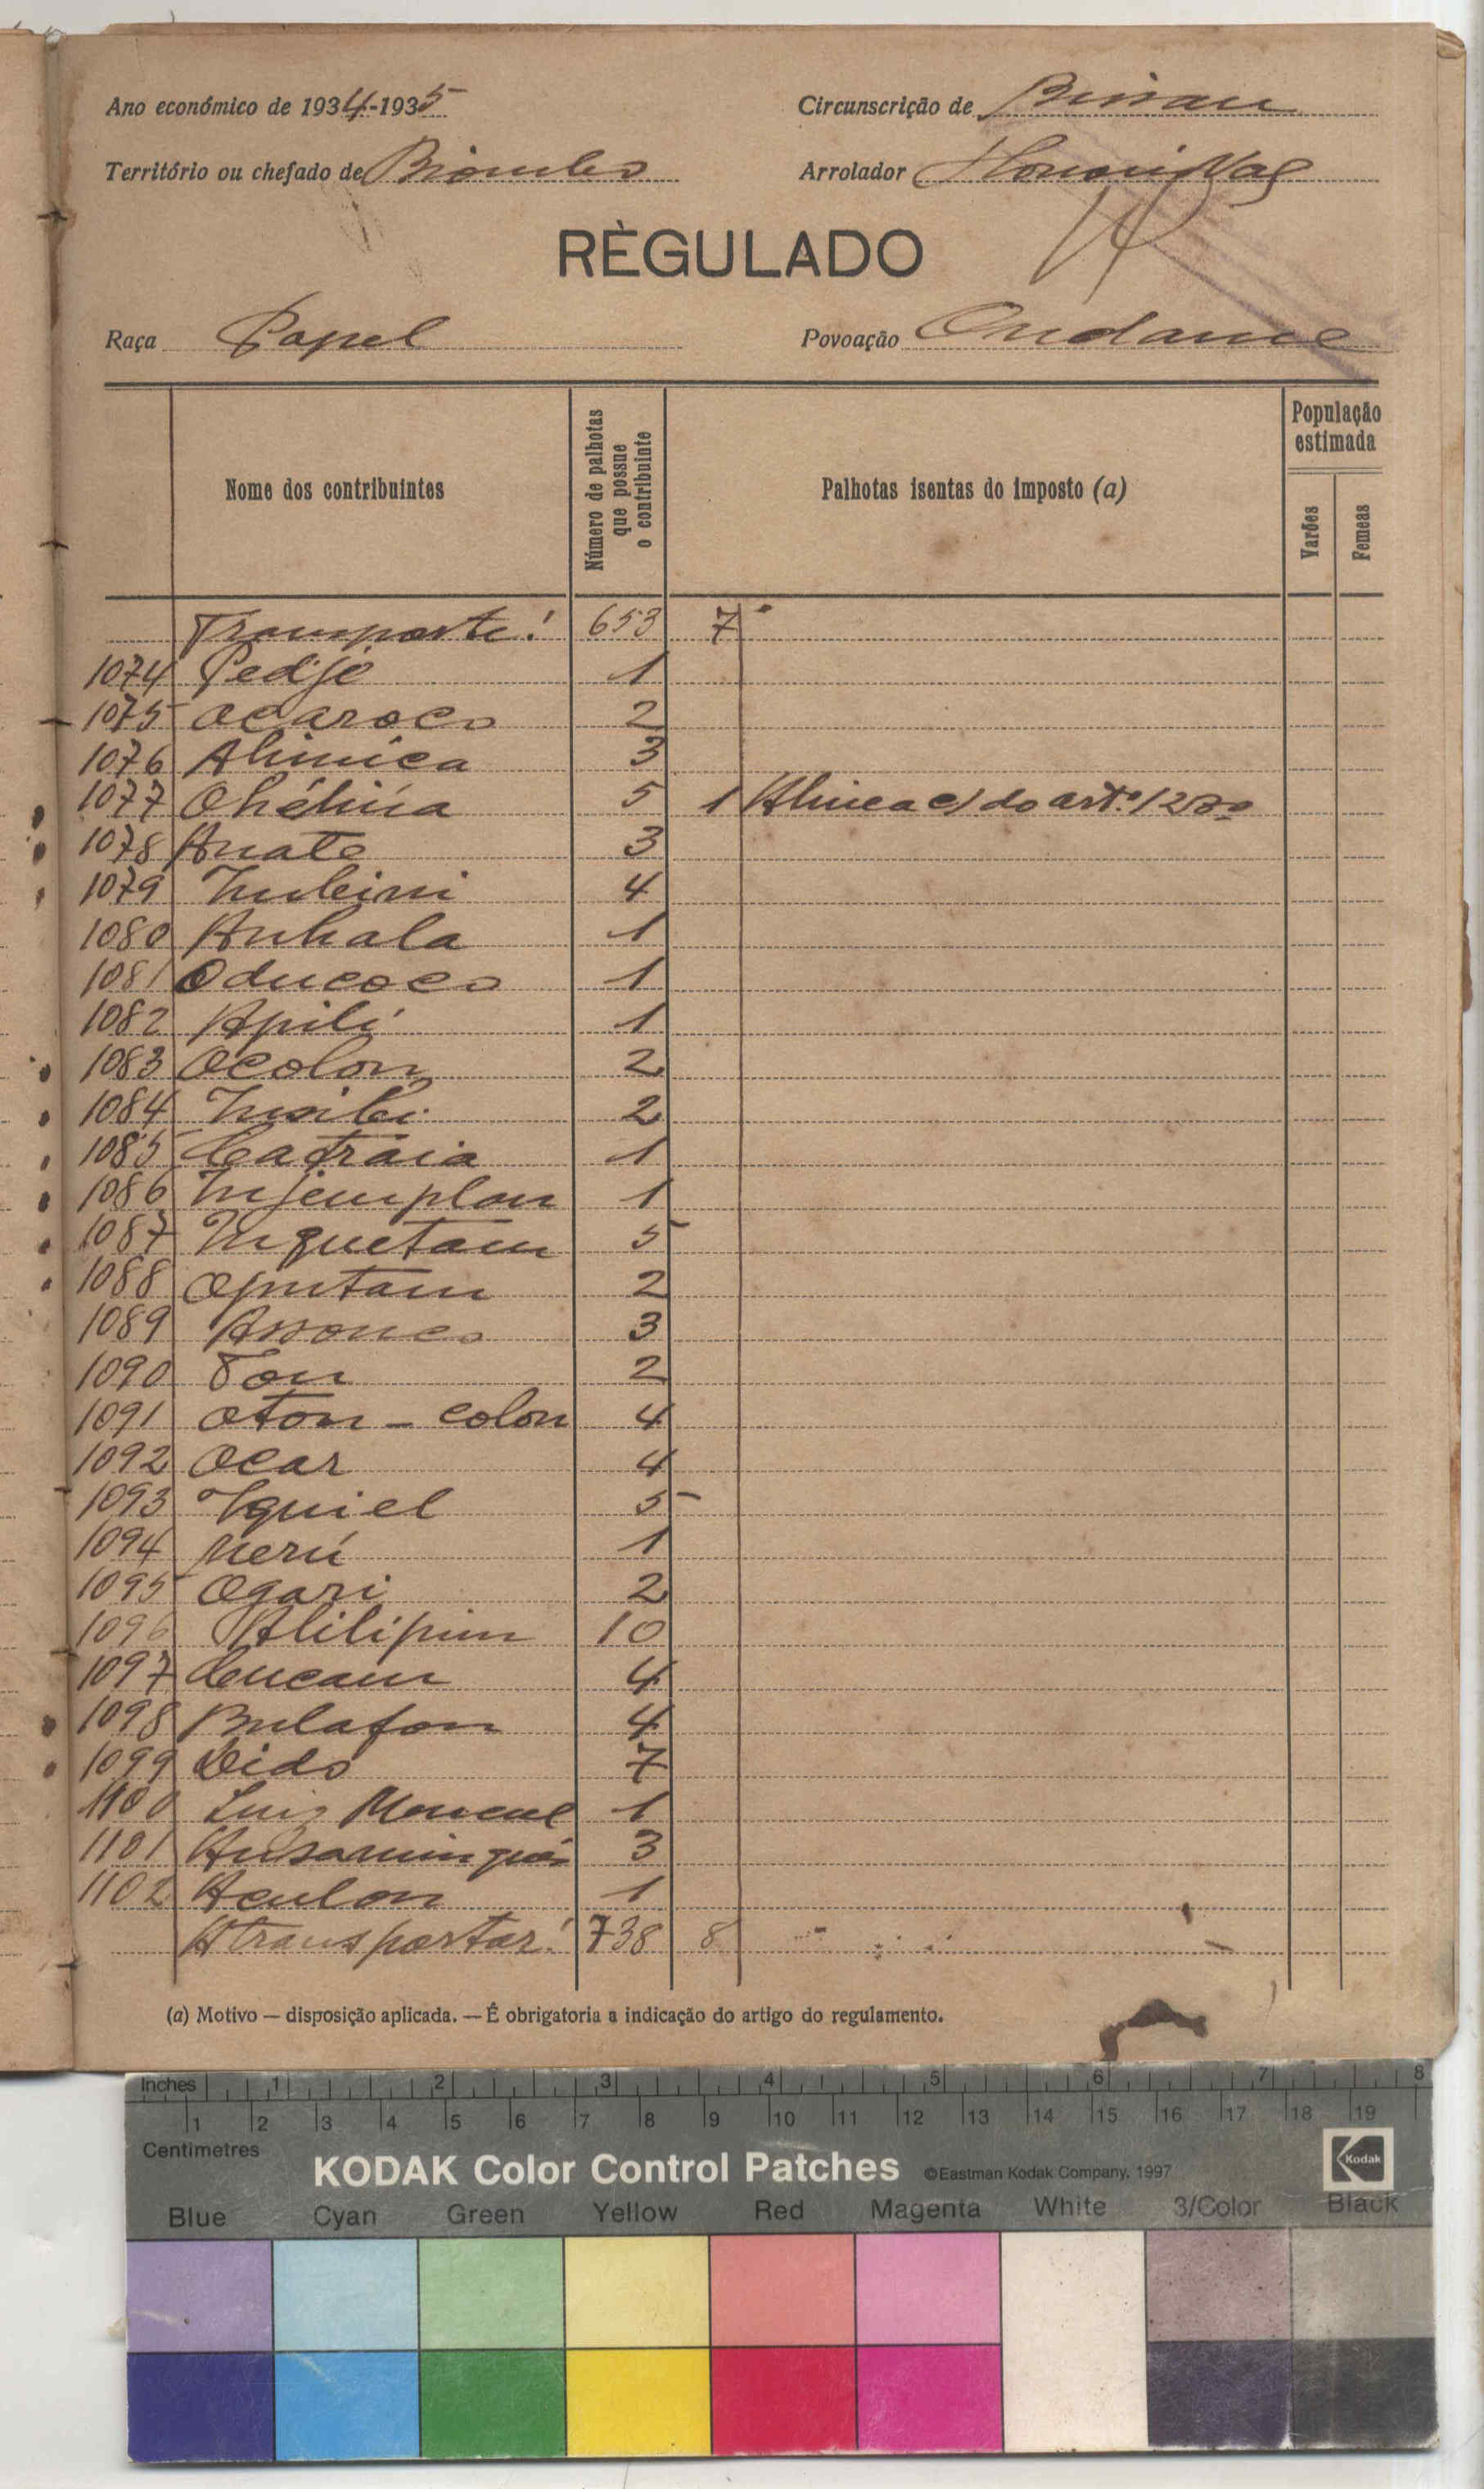 Ano económico de 1934-1935
Circunscrição de Bissau
Território ou chefado de Biombo
Arrolador
RÈGULADO
Raça Papel
Povoação Ondame
Nome dos contribuintes
Número de palhotas que possue o contribuinte
Palhotas isentas do imposto (a)
População estimada
Varões
Femeas
Transporte! 653 7
1074 Pedjó 1
1075 Ocaroco 2
1076 Alinica 3
1077 5 1 Alinea c) do artº 12
1078 Anate 3
1079 4
1080 Anhala 1
1081 Oducoco 1
1082 Apili 1
1083 Ocolon 2
1084 2
1085 Catraia 1
1086 Injemplan 1
1087 Inquetam 5
1088 Oputam 2
1089 3
1090 Ton 2
1091 Oton - colon 4
1092 Ocar 4
1093 Iquiel 5
1094 Nerú 1
1095 Ogari 2
1096 Alilipim 10
1097 Cucam 4
1098 Bulafon 4
1099 Dido 7
1100 Luiz 1
1101 3
1102 Aculon 1
A transportar! 738 8
(a) Motivo — disposição aplicada. — É obrigatoria a indicação do artigo do regulamento.
Inches 1 2 3 4 5 6 7 8
1 2 3 4 5 6 7 8 9 10 11 12 13 14 15 16 17 18 19
Centimetres
KODAK Color Control Patches ©Eastman Kodak Company, 1997 Kodak
Blue Cyan Green Yellow Red Magenta White 3/Color Black